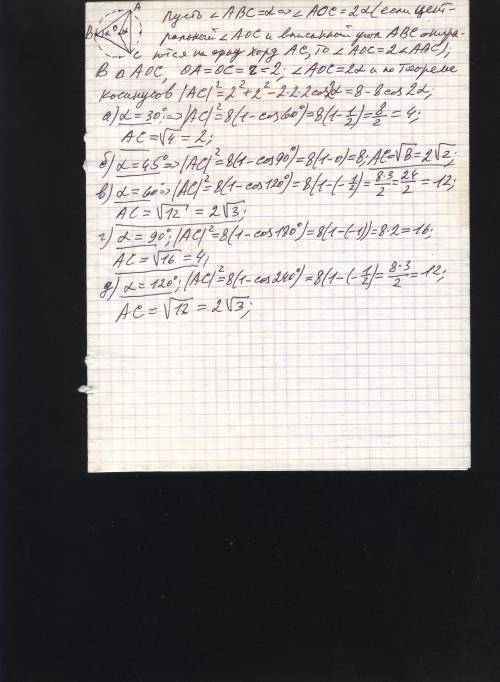 Пусть ∠ABC=α ⇒ ∠AOC=2α (если цент-
A
B
O
α
C
ральный ∠AOC и вписанный угол ABC опира-
ются на одну хорд AC, то ∠AOC=2∠ABC);
В △AOC, OA=OC=r=2; ∠AOC=2α и по теореме
косинусов |AC|²=2²+2²-2·2·2cos2α=8-8cos2α;
а) α=30°; ⇒ |AC|²=8(1-cos60°)=8(1-1/2)=8/2=4;
AC=√4=2;
б) α=45° ⇒ |AC|²=8(1-cos90°)=8(1-0)=8; AC=√8=2√2;
в) α=60 ⇒ |AC|²=8(1-cos120°)=8(1-(-1/2))=8·3/2=24/2=12;
AC=√12=2√3;
г) α=90°; |AC|²=8(1-cos180°)=8(1-(-1))=8·2=16;
AC=√16=4;
д) α=120°; |AC|²=8(1-cos240°)=8(1-(-1/2))=8·3/2=12;
AC=√12=2√3;